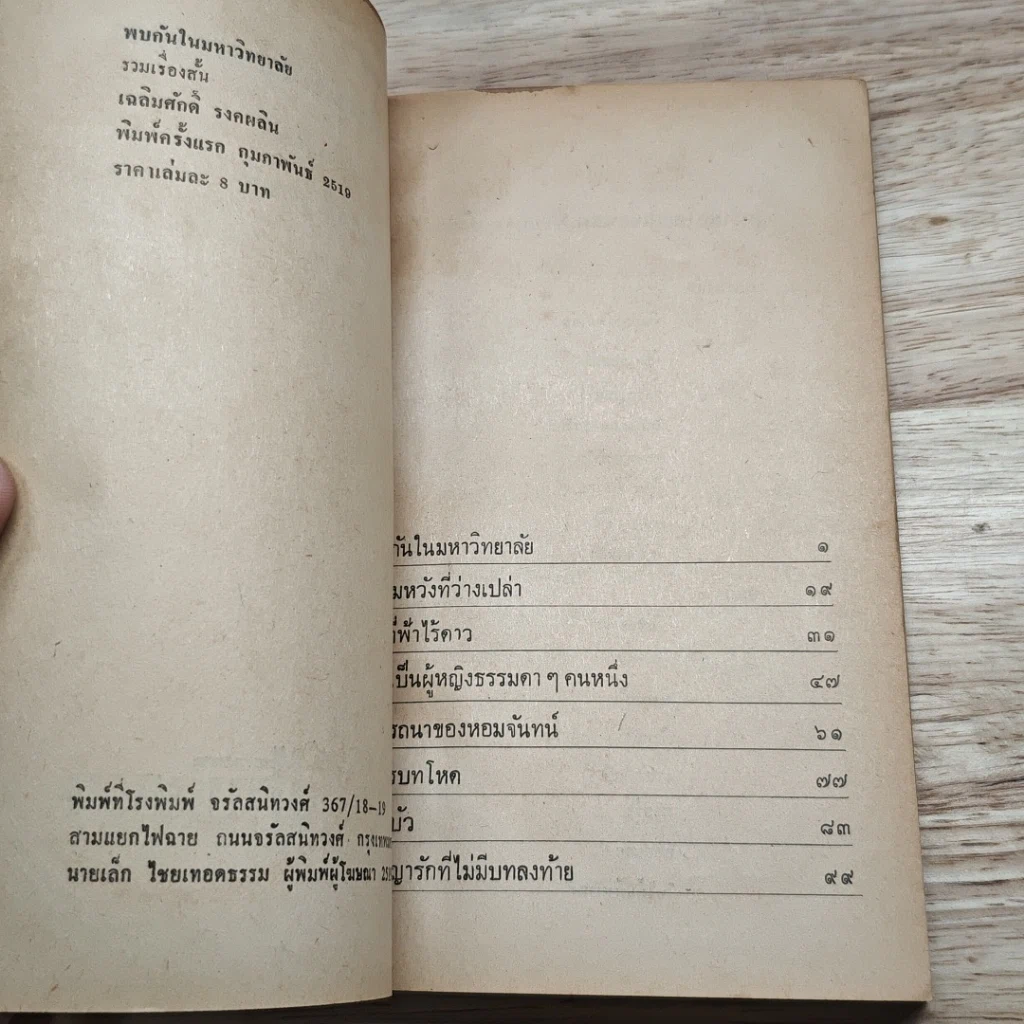 พบกันในมหาวิทยาลัย
รวมเรื่องสั้น
เฉลิมศักดิ์ รงคผลิน
พิมพ์ครั้งแรก กุมภาพันธ์ 2519
ราคาเล่มละ 8 บาท
พิมพ์ที่โรงพิมพ์ จรัลสนิทวงศ์ 367/18-19
สามแยกไฟฉาย ถนนจรัลสนิทวงศ์
นายเล็ก ไชยเทอดธรรม ผู้พิมพ์ผู้โฆษณา
กันในมหาวิทยาลัย ๑
มหวังที่ว่างเปล่า ๑๙
ที่ฟ้าไร้ดาว ๓๑
เป็นผู้หญิงธรรมดา ๆ คนหนึ่ง ๔๗
รถนาของหอมจันทน์ ๖๑
รบทโหด ๗๗
บัว ๘๓
ญารักที่ไม่มีบทลงท้าย ๙๙